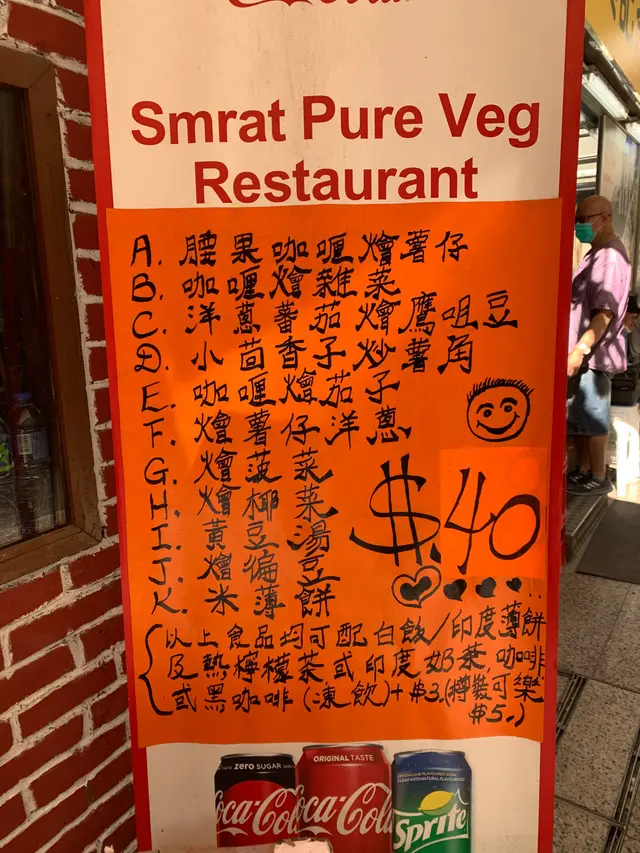 Smrat Pure Veg
Restaurant
A. 腰果咖喱燴薯仔
B. 咖喱燴雜菜
C. 洋蔥蕃茄燴鷹咀豆
D. 小茴香子炒薯角
E. 咖喱燴茄子
F. 燴薯仔洋蔥
G. 燴菠菜
H. 燴椰菜
I. 黃豆湯
J. 燴徧豆
K. 米薄餅
$40
以上食品均可配白飯/印度薄餅
及熱檸檬茶或印度奶茶,咖啡
或黑咖啡(凍飲)+$3.(樽裝可樂
$5.)
zero SUGAR
Coca-Cola
ORIGINAL TASTE
Coca-Cola
Sprite